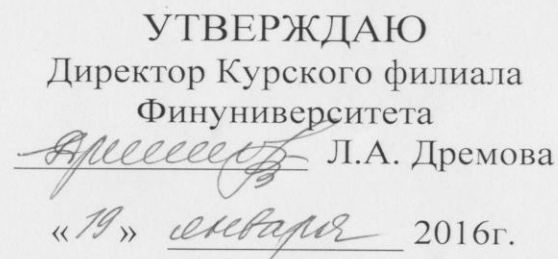 УТВЕРЖДАЮ
Директор Курского филиала
Финуниверситета
Л.А. Дремова
«19» января 2016г.